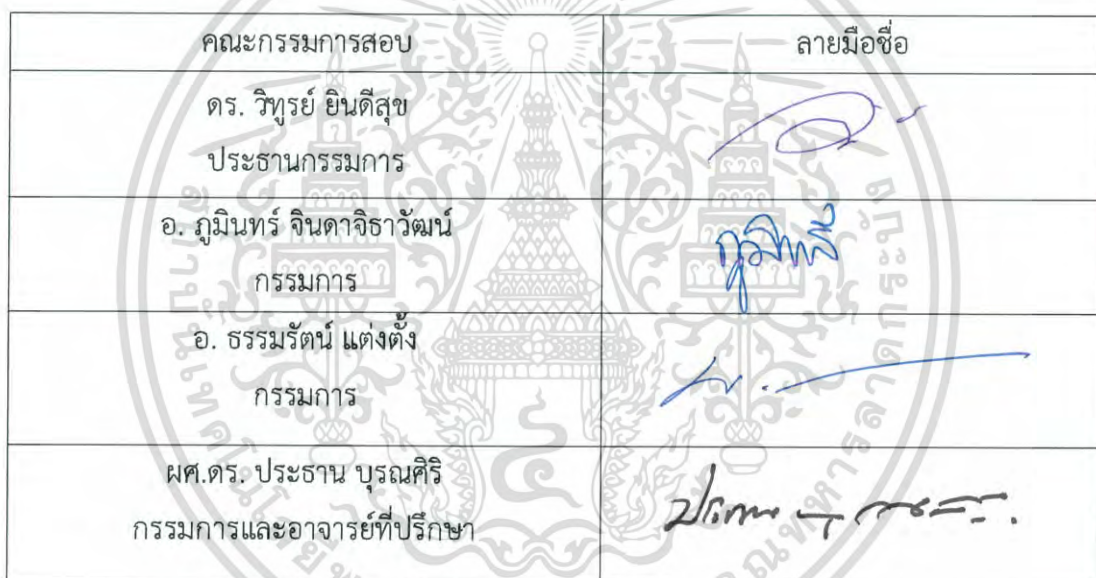 คณะกรรมการสอบ ลายมือชื่อ
ดร. วิทูรย์ ยินดีสุข
ประธานกรรมการ
อ. ภูมินทร์ จินดาจิธาวัฒน์
กรรมการ
ภูมินทร์
อ. ธรรมรัตน์ แต่งตั้ง
กรรมการ
ผศ.ดร. ประธาน บุรณศิริ
กรรมการและอาจารย์ที่ปรึกษา
ประธาน บุรณศิริ